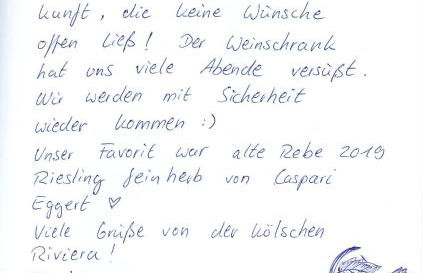 kunft, die keine Wünsche
offen ließ! Der Weinschrank
hat uns viele Abende versüßt.
Wir werden mit Sicherheit
wieder kommen :)
Unser Favorit war alte Rebe 2019
Riesling feinherb von Caspari
Eggert ♡
Viele Grüße von der kölschen
Riviera!